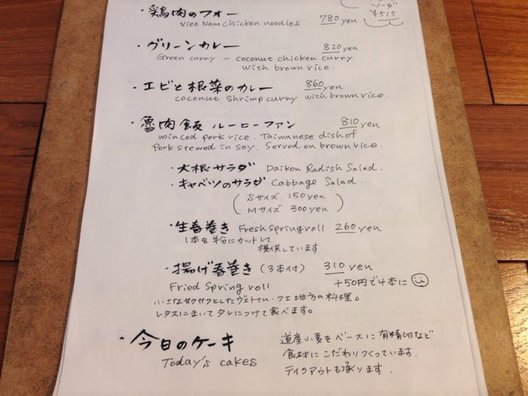 ソーダ
¥515
・鶏肉のフォー 780yen
Viet Nam chicken noodles
・グリーンカレー 820yen
Green curry — coconut chicken curry
with brown rice.
・エビと根菜のカレー 860yen
coconut shrimp curry with brown rice.
・魯肉飯 ルーローファン 810yen
winced pork rice. Taiwanese dish of
pork stewed in soy. Served on brown rice.
・大根サラダ Daikon Radish Salad.
・キャベツのサラダ Cabbage Salad.
( Sサイズ 150yen
Mサイズ 300yen )
・生春巻き Fresh Spring roll 260yen
1本を半分にカットして
提供しています
・揚げ春巻き (3本付) 310yen
Fried Spring roll +50円で4本に
小さなサクサクとしたヴェトナム・フエ地方の料理。
レタスにまいてタレにつけて食べます。
・今日のケーキ 道産小麦をベースに有精卵など
Today's cakes 食材にこだわりつくっています。
テイクアウトも承ります。